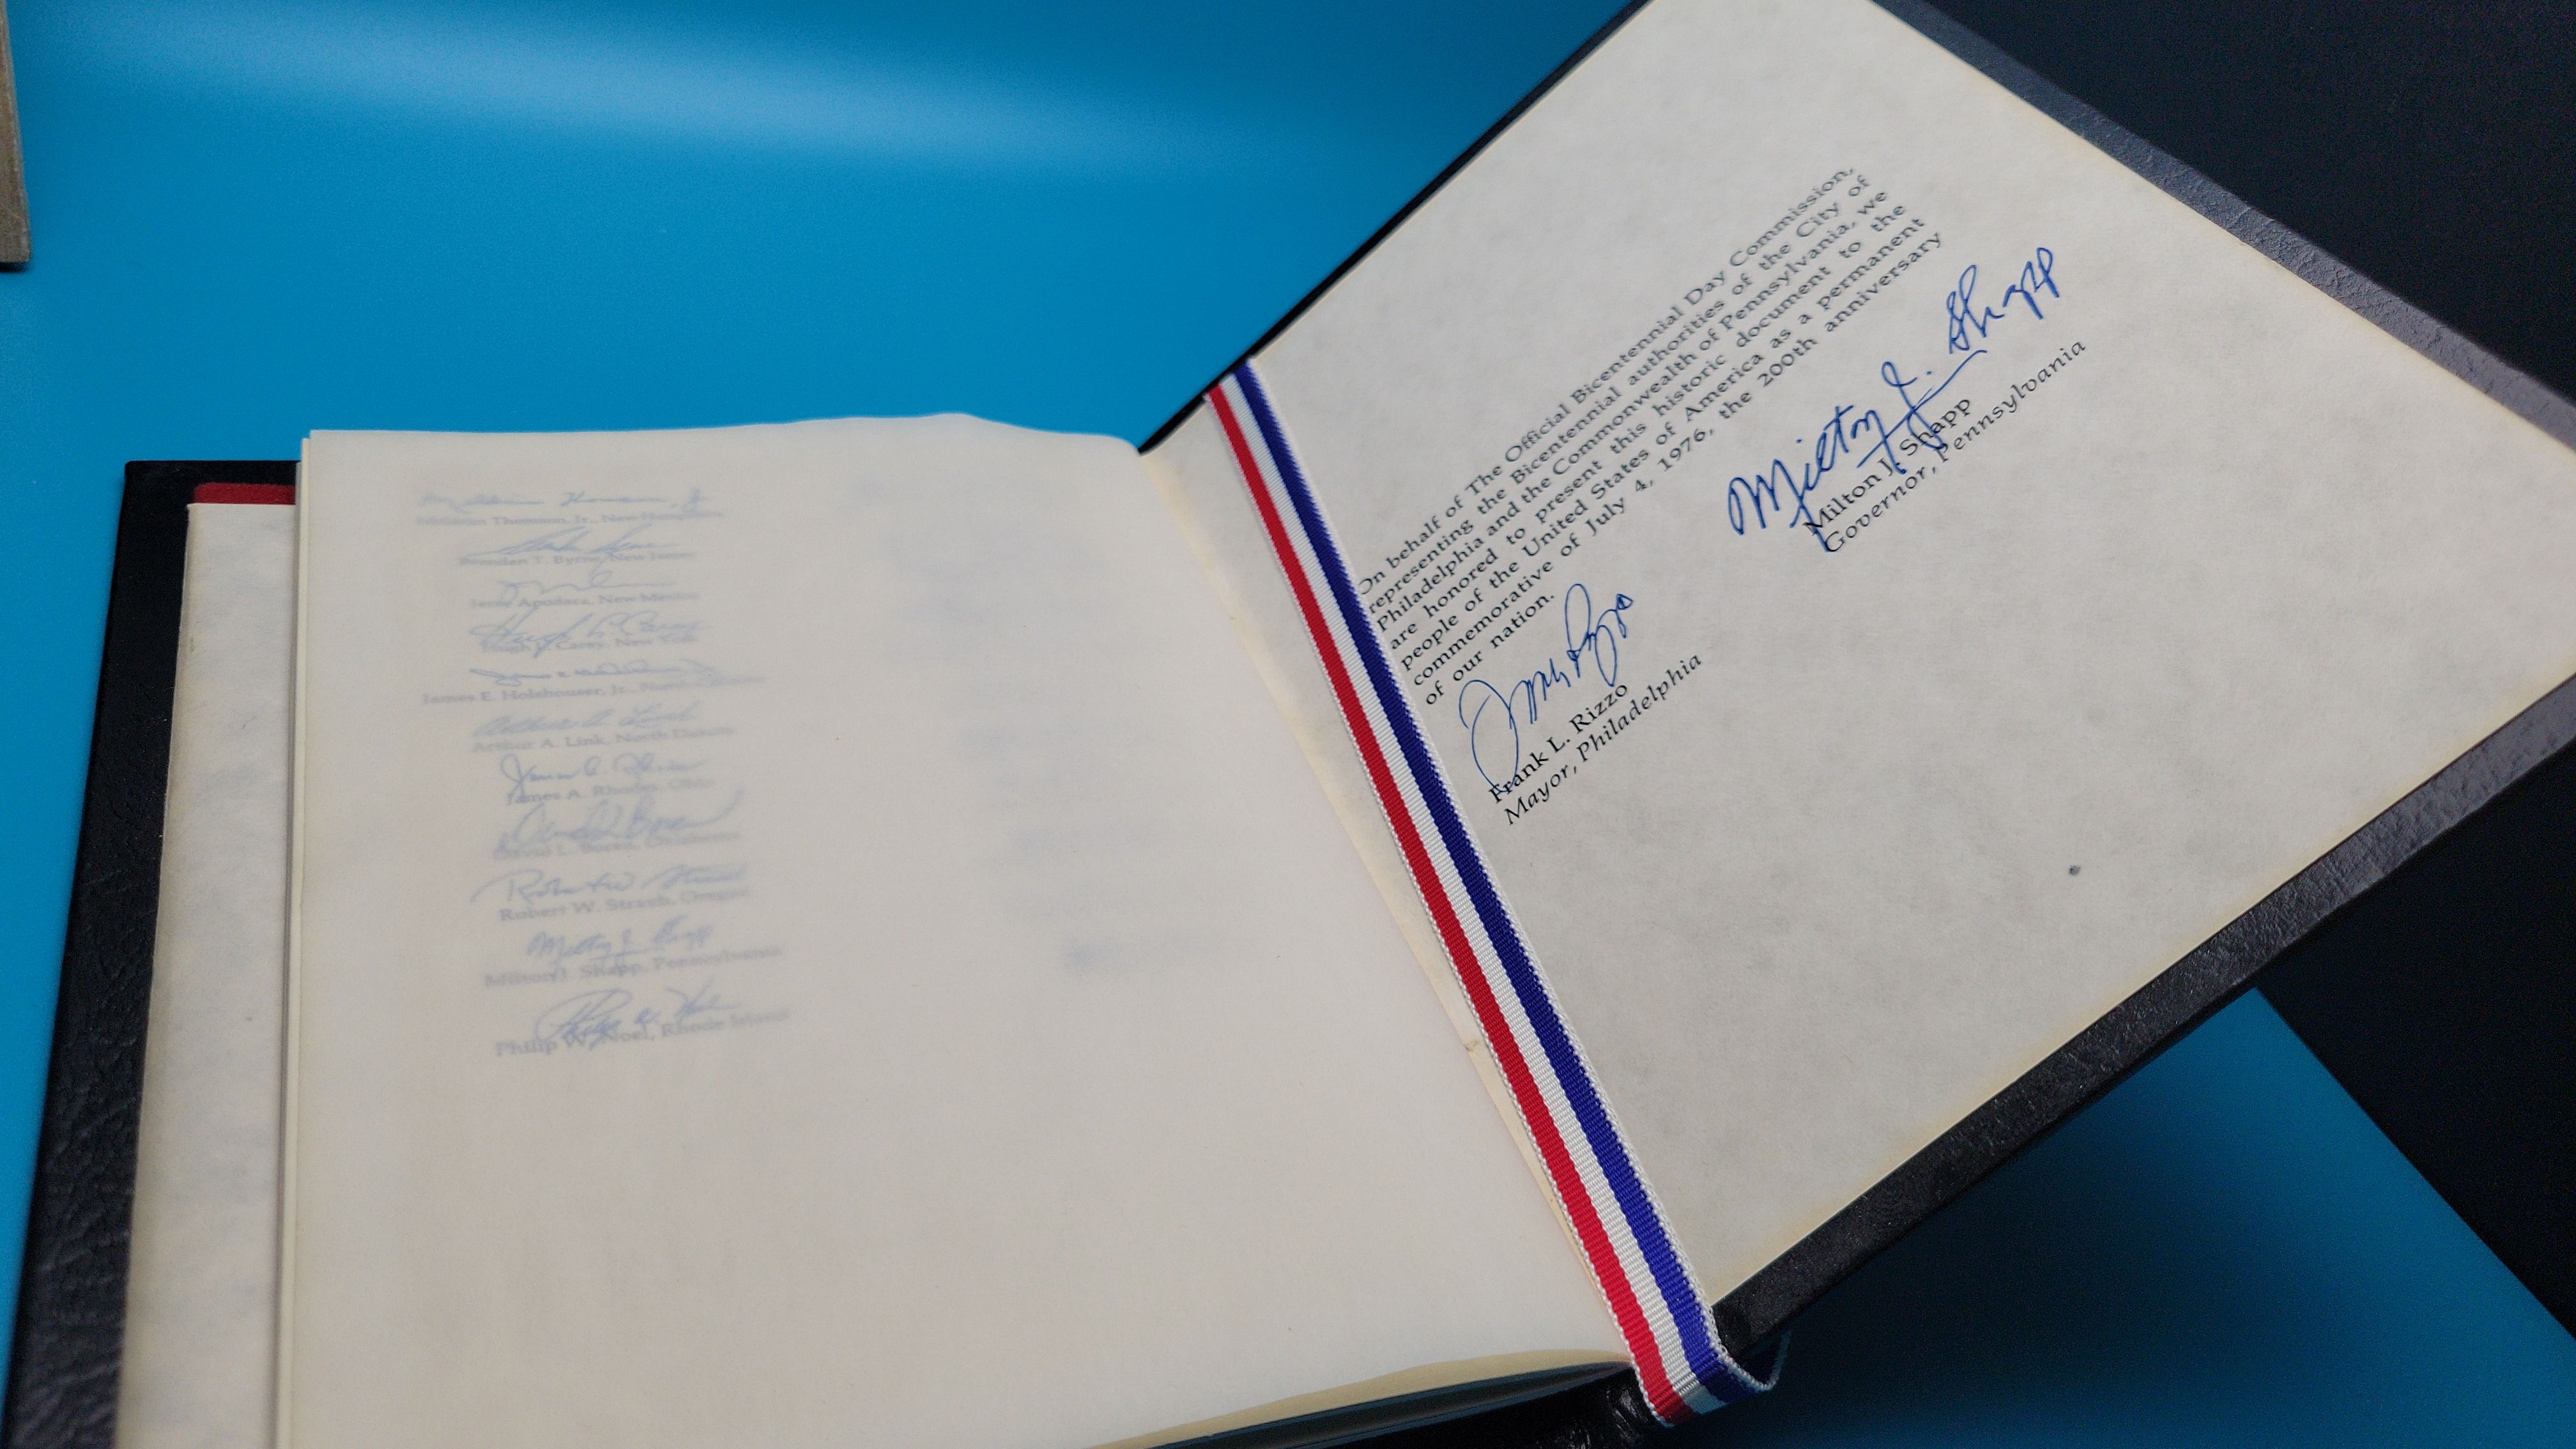 Meldrim Thomson, Jr., New Hampshire
Brendan T. Byrne, New Jersey
Jerry Apodaca, New Mexico
Hugh L. Carey
Hugh L. Carey, New York
James E. Holshouser, Jr., North Carolina
Arthur A. Link
Arthur A. Link, North Dakota
James A. Rhodes
James A. Rhodes, Ohio
David L. Boren
David L. Boren, Oklahoma
Robert W. Straub
Robert W. Straub, Oregon
Milton J. Shapp
Milton J. Shapp, Pennsylvania
Philip W. Noel
Philip W. Noel, Rhode Island
On behalf of The Official Bicentennial Day Commission,
representing the Bicentennial authorities of the City of
Philadelphia and the Commonwealth of Pennsylvania, we
are honored to present this historic document to the
people of the United States of America as a permanent
commemorative of July 4, 1976, the 200th anniversary
of our nation.
Milton J. Shapp
Milton J. Shapp
Governor, Pennsylvania
Frank Rizzo
Frank L. Rizzo
Mayor, Philadelphia